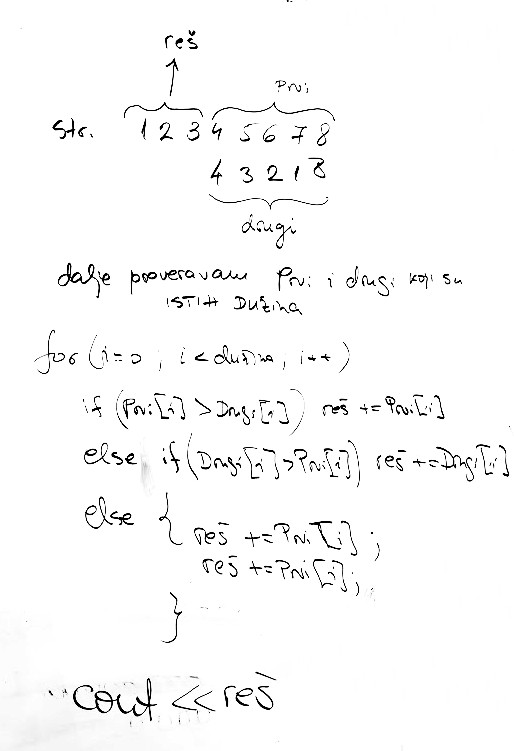 reš
Prvi
Str. 1 2 3 4 5 6 7 8
4 3 2 1 8
drugi
dalje proveravam Prvi i drugi koji su
ISTIH DUŽINA
for (i=0 ; i < dužina, i++)
if (Prvi[i] > Drugi[i]) reš += Prvi[i]
else if (Drugi[i] > Prvi[i]) reš += Drugi[i]
else { reš += Prvi[i] ;
reš += Prvi[i];
}
cout << reš